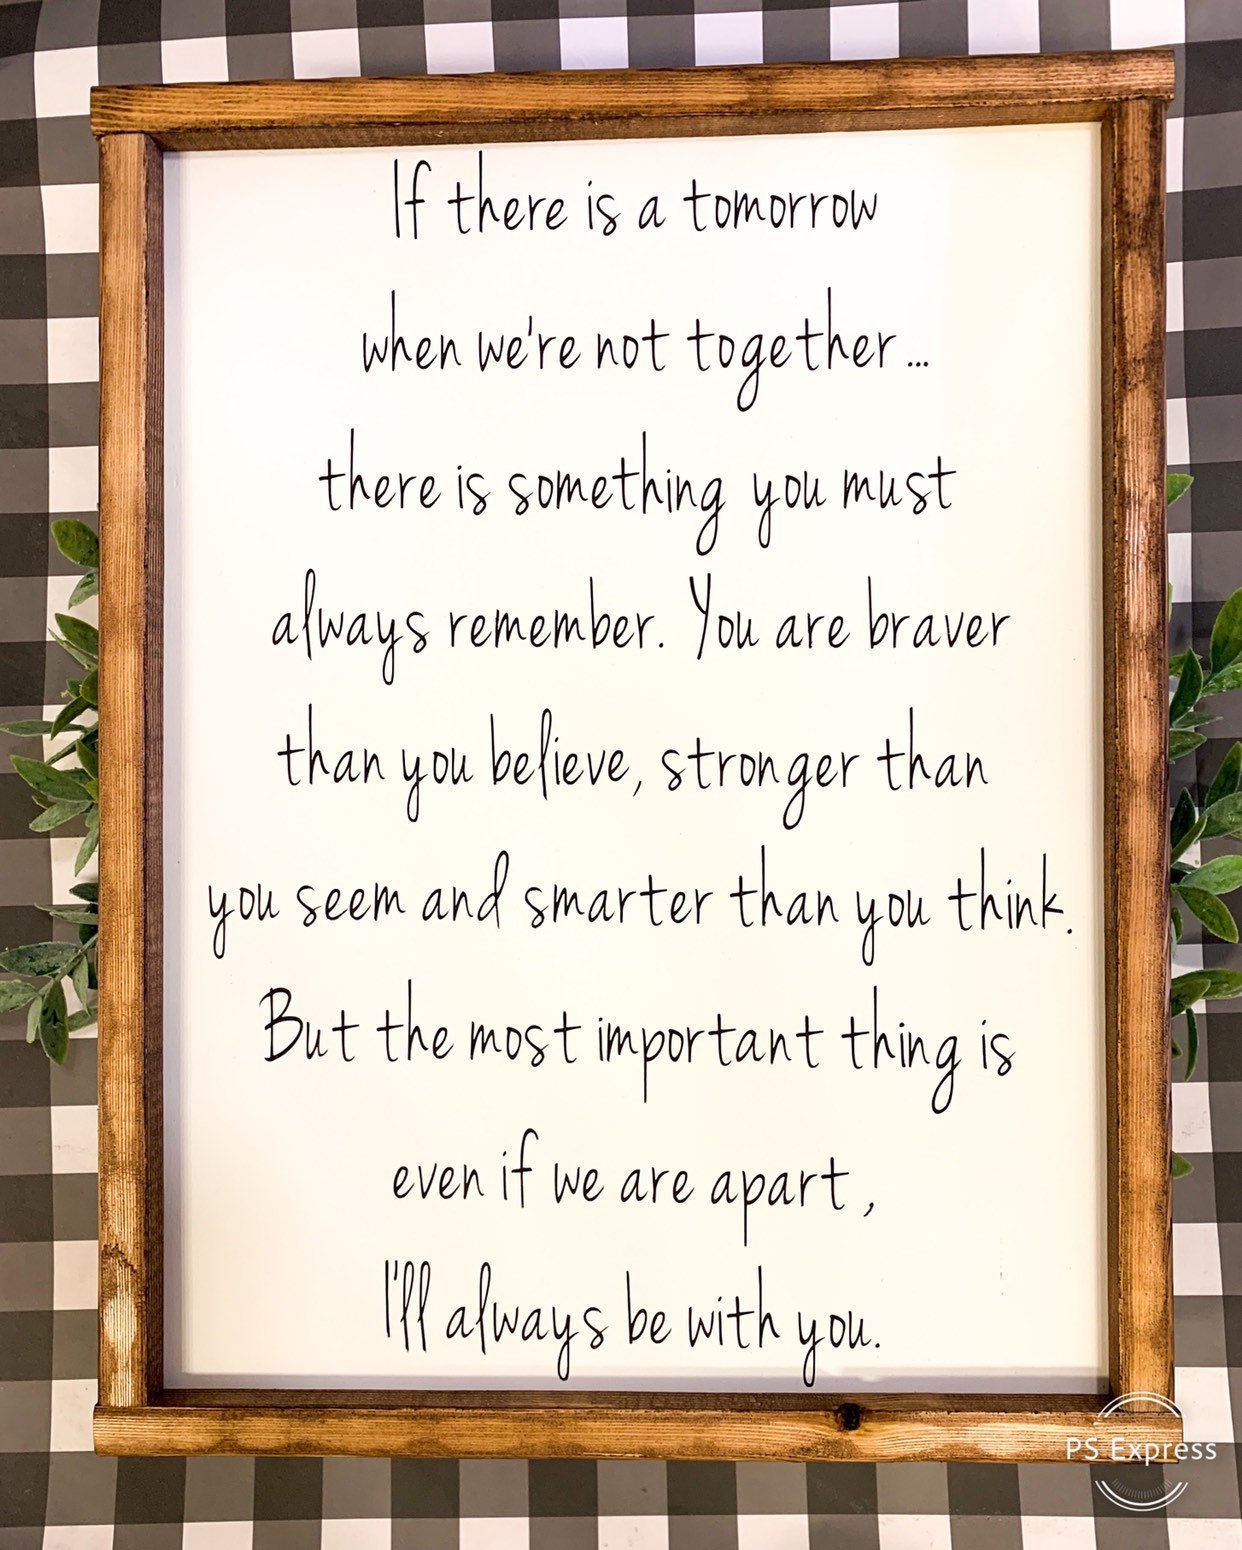 If there is a tomorrow
when we're not together...
there is something you must
always remember. You are braver
than you believe, stronger than
you seem and smarter than you think.
But the most important thing is
even if we are apart,
I'll always be with you.
PS Express